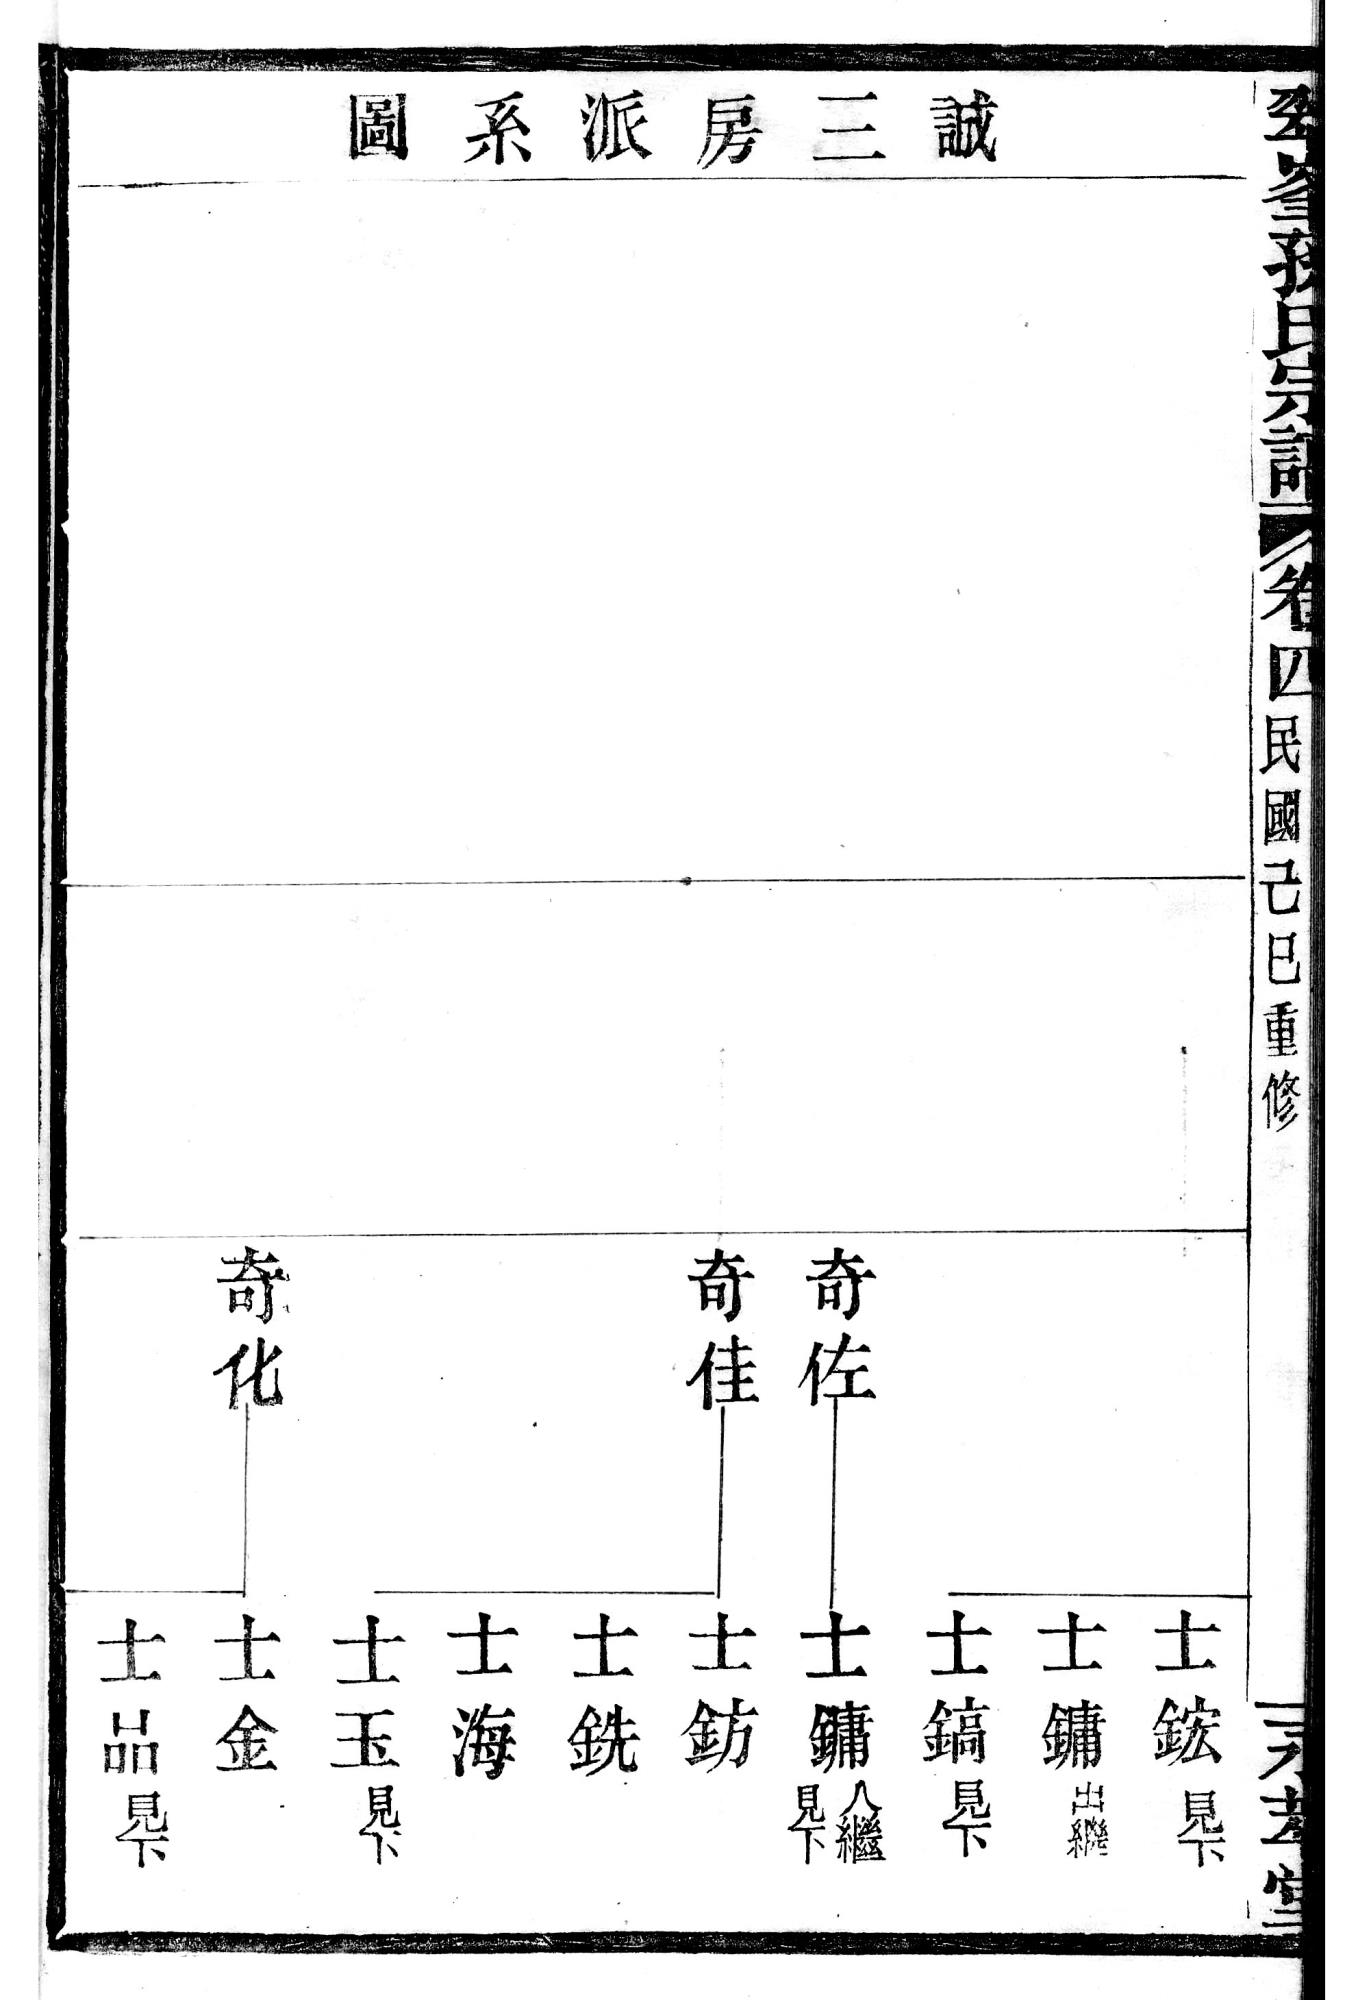 孫氏宗譜
卷四
民國己巳重修
誠三房派系圖
奇佐
奇佳
奇化
士鋐 見下
士鏞 出繼
士鎬 見下
士鏞 入繼 見下
士鈁
士銑
士海
士玉 見下
士金
士品 見下